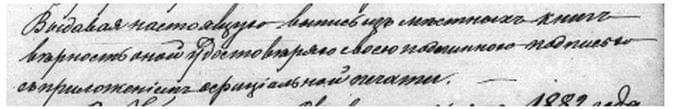 Выдавая настоящую выпись изъ мѣстныхъ книгъ
вѣрность оной удостовѣряю своею подписью
съ приложеніемъ официальной печати. —
1882 года